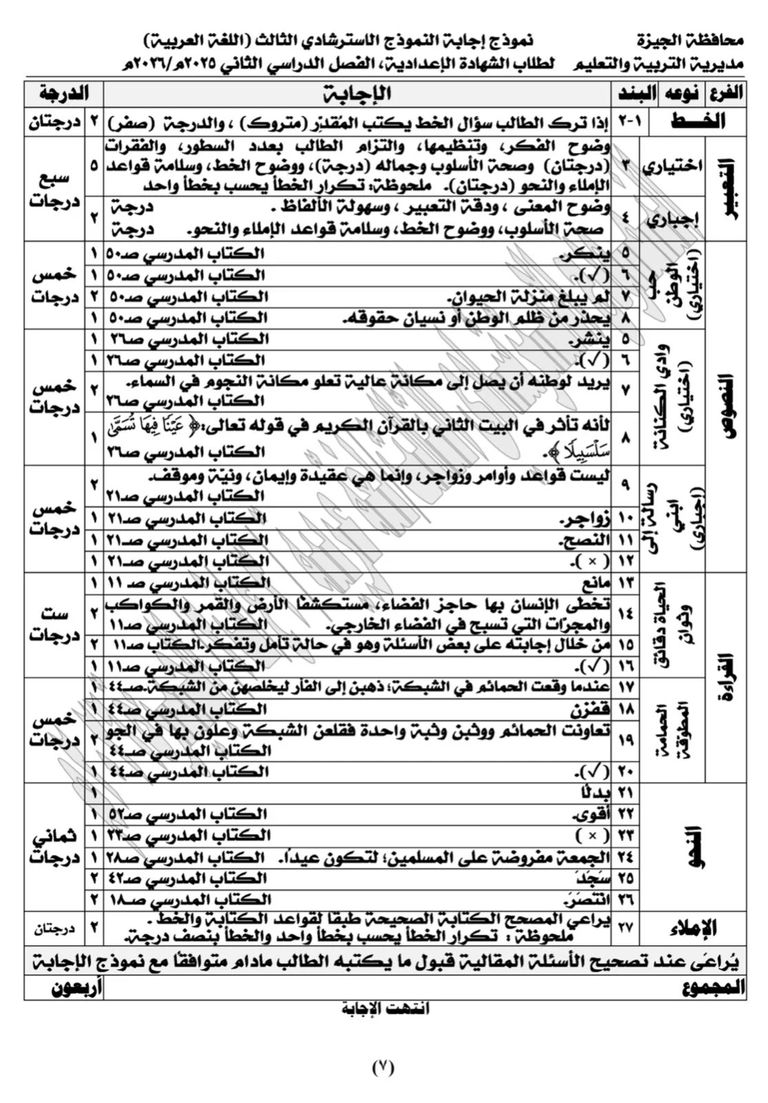 محافظة الجيزة نموذج إجابة النموذج الاسترشادي الثالث (اللغة العربية)
مديرية التربية والتعليم لطلاب الشهادة الإعدادية، الفصل الدراسي الثاني ٢٠٢٥م/٢٠٢٦م
الفرع نوعه البند الإجابة الدرجة
الخط ١-٢ إذا ترك الطالب سؤال الخط يكتب المُقدّر (متروك) ، والدرجة (صفر) ٢ درجتان
التعبير
اختياري ٣ وضوح الفكر، وتنظيمها، والتزام الطالب بعدد السطور، والفقرات
(درجتان) وصحة الأسلوب وجماله (درجة)، ووضوح الخط، وسلامة قواعد ٥ سبع
الإملاء والنحو (درجتان). ملحوظة: تكرار الخطأ يحسب بخطأ واحد درجات
إجباري ٤ وضوح المعنى ، ودقة التعبير ، وسهولة الألفاظ . درجة ٢
صحة الأسلوب، ووضوح الخط، وسلامة قواعد الإملاء والنحو. درجة
النصوص
حب الوطن (اختياري)
٥ ينكر. الكتاب المدرسي صـ٥٠ ١
٦ (√). الكتاب المدرسي صـ٥٠ ١ خمس
٧ لم يبلغ منزلة الحيوان. الكتاب المدرسي صـ٥٠ ٢ درجات
٨ يحذر من ظلم الوطن أو نسيان حقوقه. الكتاب المدرسي صـ٥٠ ١
وادي الكنانة (اختياري)
٥ ينشر. الكتاب المدرسي صـ٢٦ ١
٦ (√). الكتاب المدرسي صـ٢٦ ١
٧ يريد لوطنه أن يصل إلى مكانة عالية تعلو مكانة النجوم في السماء. ٢ خمس
الكتاب المدرسي صـ٢٦ درجات
٨ لأنه تأثر في البيت الثاني بالقرآن الكريم في قوله تعالى: ﴿ عَيْنًا فِيهَا تُسَمَّىٰ
سَلْسَبِيلًا ﴾. الكتاب المدرسي صـ٢٦ ١
رسالة إلى ابني (إجباري)
٩ ليست قواعد وأوامر وزواجر، وإنما هي عقيدة وإيمان، ونيّة وموقف. ٢
الكتاب المدرسي صـ٢١ خمس
١٠ زواجر. الكتاب المدرسي صـ٢١ ١ درجات
١١ النصح. الكتاب المدرسي صـ٢١ ١
١٢ ( × ). الكتاب المدرسي صـ٢١ ١
القراءة
الحياة دقائق وثوان
١٣ مانع الكتاب المدرسي صـ ١١ ١
١٤ تخطى الإنسان بها حاجز الفضاء، مستكشفًا الأرض والقمر والكواكب ٢ ست
والمجرّات التي تسبح في الفضاء الخارجي. الكتاب المدرسي صـ١١ درجات
١٥ من خلال إجابته على بعض الأسئلة وهو في حالة تأمل وتفكر.الكتاب صـ١١ ٢
١٦ (√). الكتاب المدرسي صـ١١ ١
الحمامة المطوّقة
١٧ عندما وقعت الحمائم في الشبكة؛ ذهبن إلى الفأر ليخلصهن من الشبكة.صـ٤٤ ١
١٨ قفزن الكتاب المدرسي صـ٤٤ ١ خمس
١٩ تعاونت الحمائم ووثبن وثبة واحدة فقلعن الشبكة وعلون بها في الجو ٢ درجات
الكتاب المدرسي صـ٤٤
٢٠ (√). الكتاب المدرسي صـ٤٤ ١
النحو
٢١ بدلًا ١
٢٢ أقوى. الكتاب المدرسي صـ٥٢ ١
٢٣ ( × ) الكتاب المدرسي صـ٢٣ ١ ثماني
٢٤ الجمعة مفروضة على المسلمين؛ لتكون عيدًا. الكتاب المدرسي صـ٢٨ ١ درجات
٢٥ سَجَدَ الكتاب المدرسي صـ٤٢ ٢
٢٦ انتَصَرَ. الكتاب المدرسي صـ١٨ ٢
الإملاء ٢٧ يراعي المصحح الكتابة الصحيحة طبقًا لقواعد الكتابة والخط . ٢ درجتان
ملحوظة : تكرار الخطأ يحسب بخطأ واحد والخطأ بنصف درجة.
يُراعَى عند تصحيح الأسئلة المقالية قبول ما يكتبه الطالب مادام متوافقًا مع نموذج الإجابة
المجموع أربعون
انتهت الإجابة
(٧)